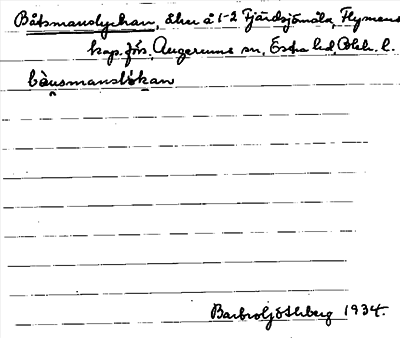 Båtsmanslyckan, åker å 1-2 Fjärdsjömåla, Flymens
kap. förs. Augerums sn, Östra hd, Blek. l.
bàusmanslökan
Barbro Göthberg 1934.